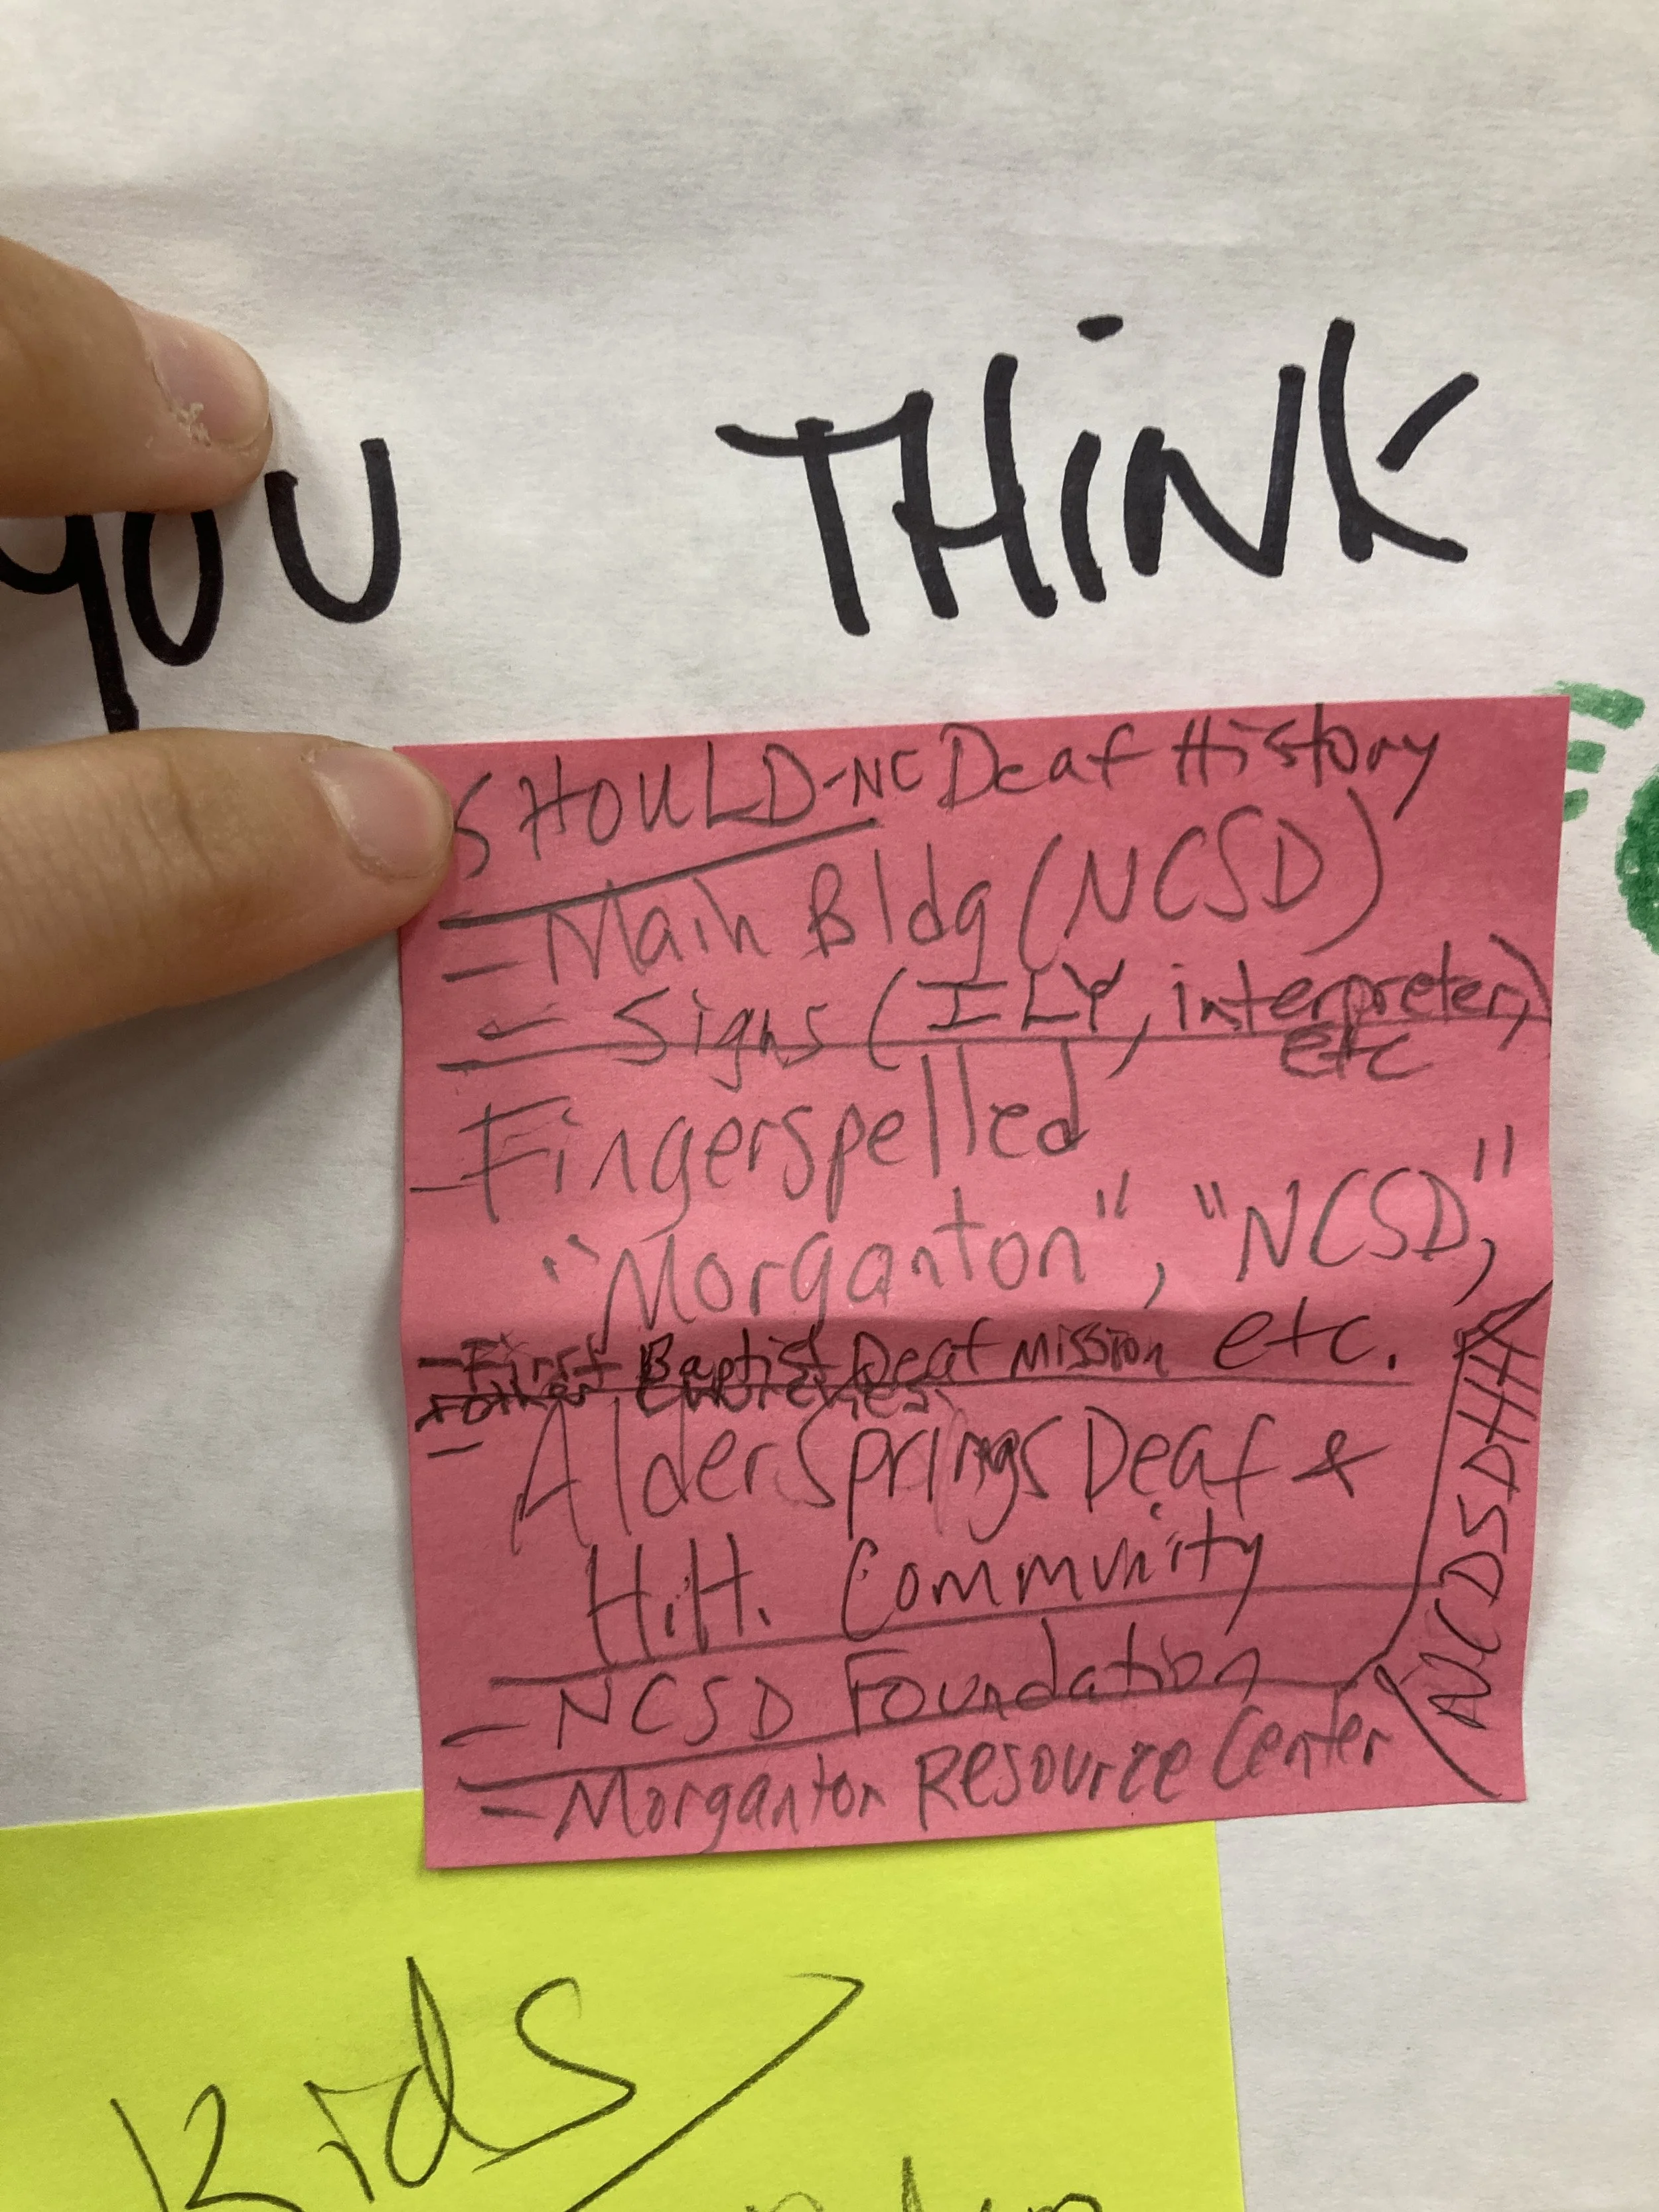 YOU THINK
SHOULD - NC Deaf History
- Main Bldg (NCSD)
- Signs (ILY, interpreter,)
etc
- Fingerspelled
"Morganton", "NCSD,"
etc.
- First Baptist Deaf Mission
(other churches)
- Alder Springs Deaf &
H.H. Community
- NCSD Foundation
- Morganton Resource Center
(NCDSDHH)
Kids